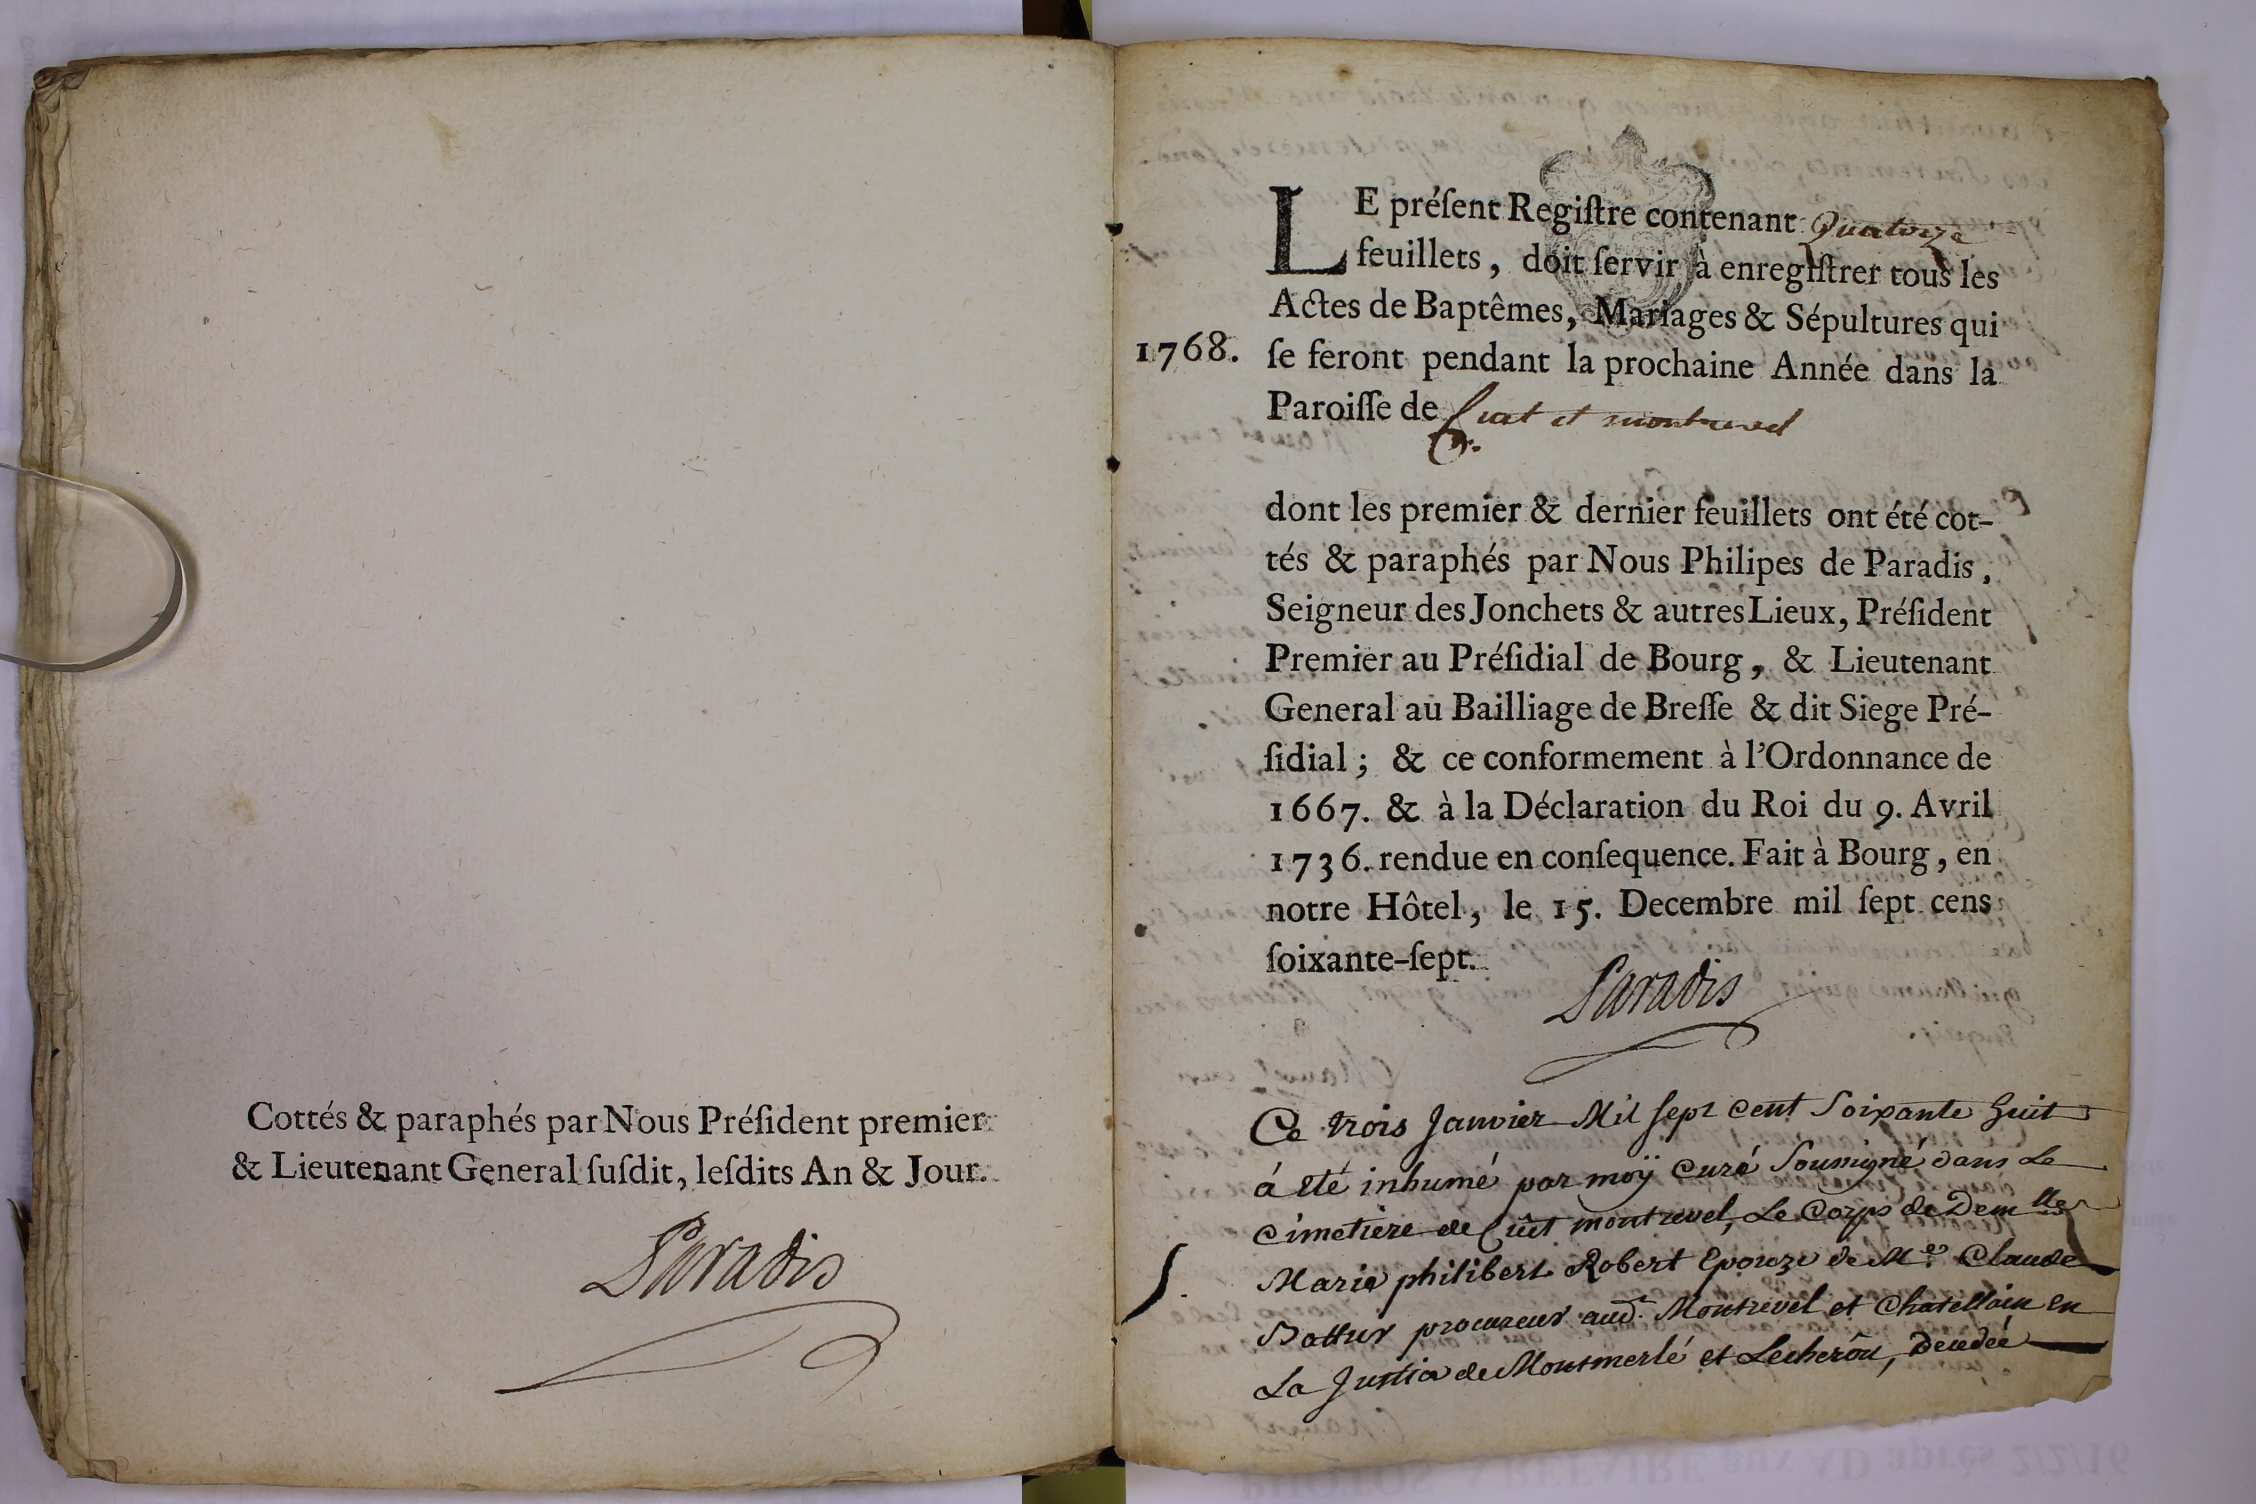 Cottés & paraphés par Nous Préſident premier
& Lieutenant General ſuſdit, leſdits An & Jour.
Paradis
LE préſent Regiſtre contenant Quatorze
feuillets, doit ſervir à enregiſtrer tous les
Actes de Baptêmes, Mariages & Sépultures qui
1768. ſe feront pendant la prochaine Année dans la
Paroiſſe de Cuet et montrevel
dont les premier & dernier feuillets ont été cot-
tés & paraphés par Nous Philipes de Paradis,
Seigneur des Jonchets & autres Lieux, Préſident
Premier au Préſidial de Bourg, & Lieutenant
General au Bailliage de Breſſe & dit Siege Pré-
ſidial; & ce conformement à l'Ordonnance de
1667. & à la Déclaration du Roi du 9. Avril
1736. rendue en conſequence. Fait à Bourg, en
notre Hôtel, le 15. Decembre mil ſept cens
ſoixante-ſept.
Paradis
Ce trois Janvier Mil Sept Cent Soixante huit
á eté inhumé par moÿ Curé Soussigné dans Le
Cimetiere de Cüet montrevel, Le Corps de Demlle
S. Marie philibert Robert Epouze de Me Claude
procureur aud. Montrevel et Chatellain en
La Justice de Montmerlé et Lecherôu, Decedée